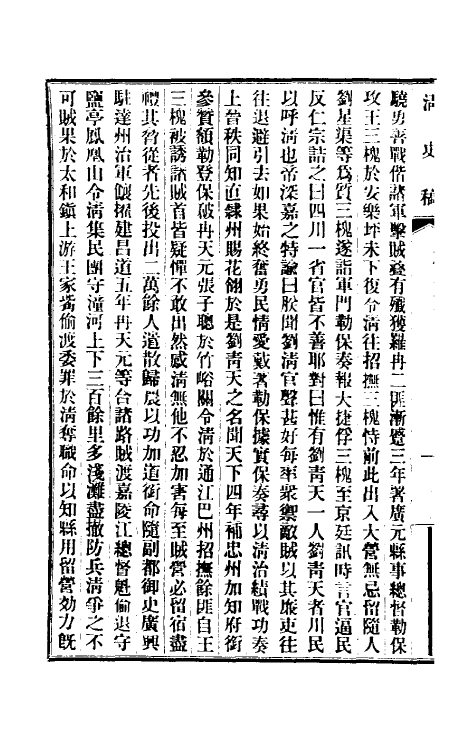 清史稿
驍勇善戰偕諸軍擊賊疊有殲獲羅冉二匪漸蹙三年署廣元縣事總督勒保
攻王三槐於安樂坪未下復令淸往招撫三槐恃前此出入大營無忌留隨人
劉星渠等爲質三槐遂詣軍門勒保奏報大捷俘三槐至京廷訊時言官逼民
反仁宗詰之曰四川一省官皆不善耶對曰惟有劉靑天一人劉靑天者川民
以呼淸也帝深嘉之特諭曰朕聞劉淸官聲甚好每率衆禦敵賊以其廉吏往
往退避引去如果始終奮勇民情愛戴著勒保據實保奏尋以淸治績戰功奏
上晉秩同知直隸州賜花翎於是劉靑天之名聞天下四年補忠州加知府銜
參贊額勒登保破冉天元張子聰於竹峪關令淸於通江巴州招撫餘匪自王
三槐被誘諸賊首皆疑憚不敢出然感淸無他不忍加害每至賊營必留宿盡
禮其脅從者先後投出二萬餘人遣散歸農以功加道銜命隨副都御史廣興
駐達州治軍餉擢建昌道五年冉天元等合諸路賊渡嘉陵江總督魁倫退守
鹽亭鳳凰山令淸集民團守潼河上下三百餘里多淺灘盡撤防兵淸爭之不
可賊果於太和鎭上游王家嘴偷渡委罪於淸奪職命以知縣用留營効力旣